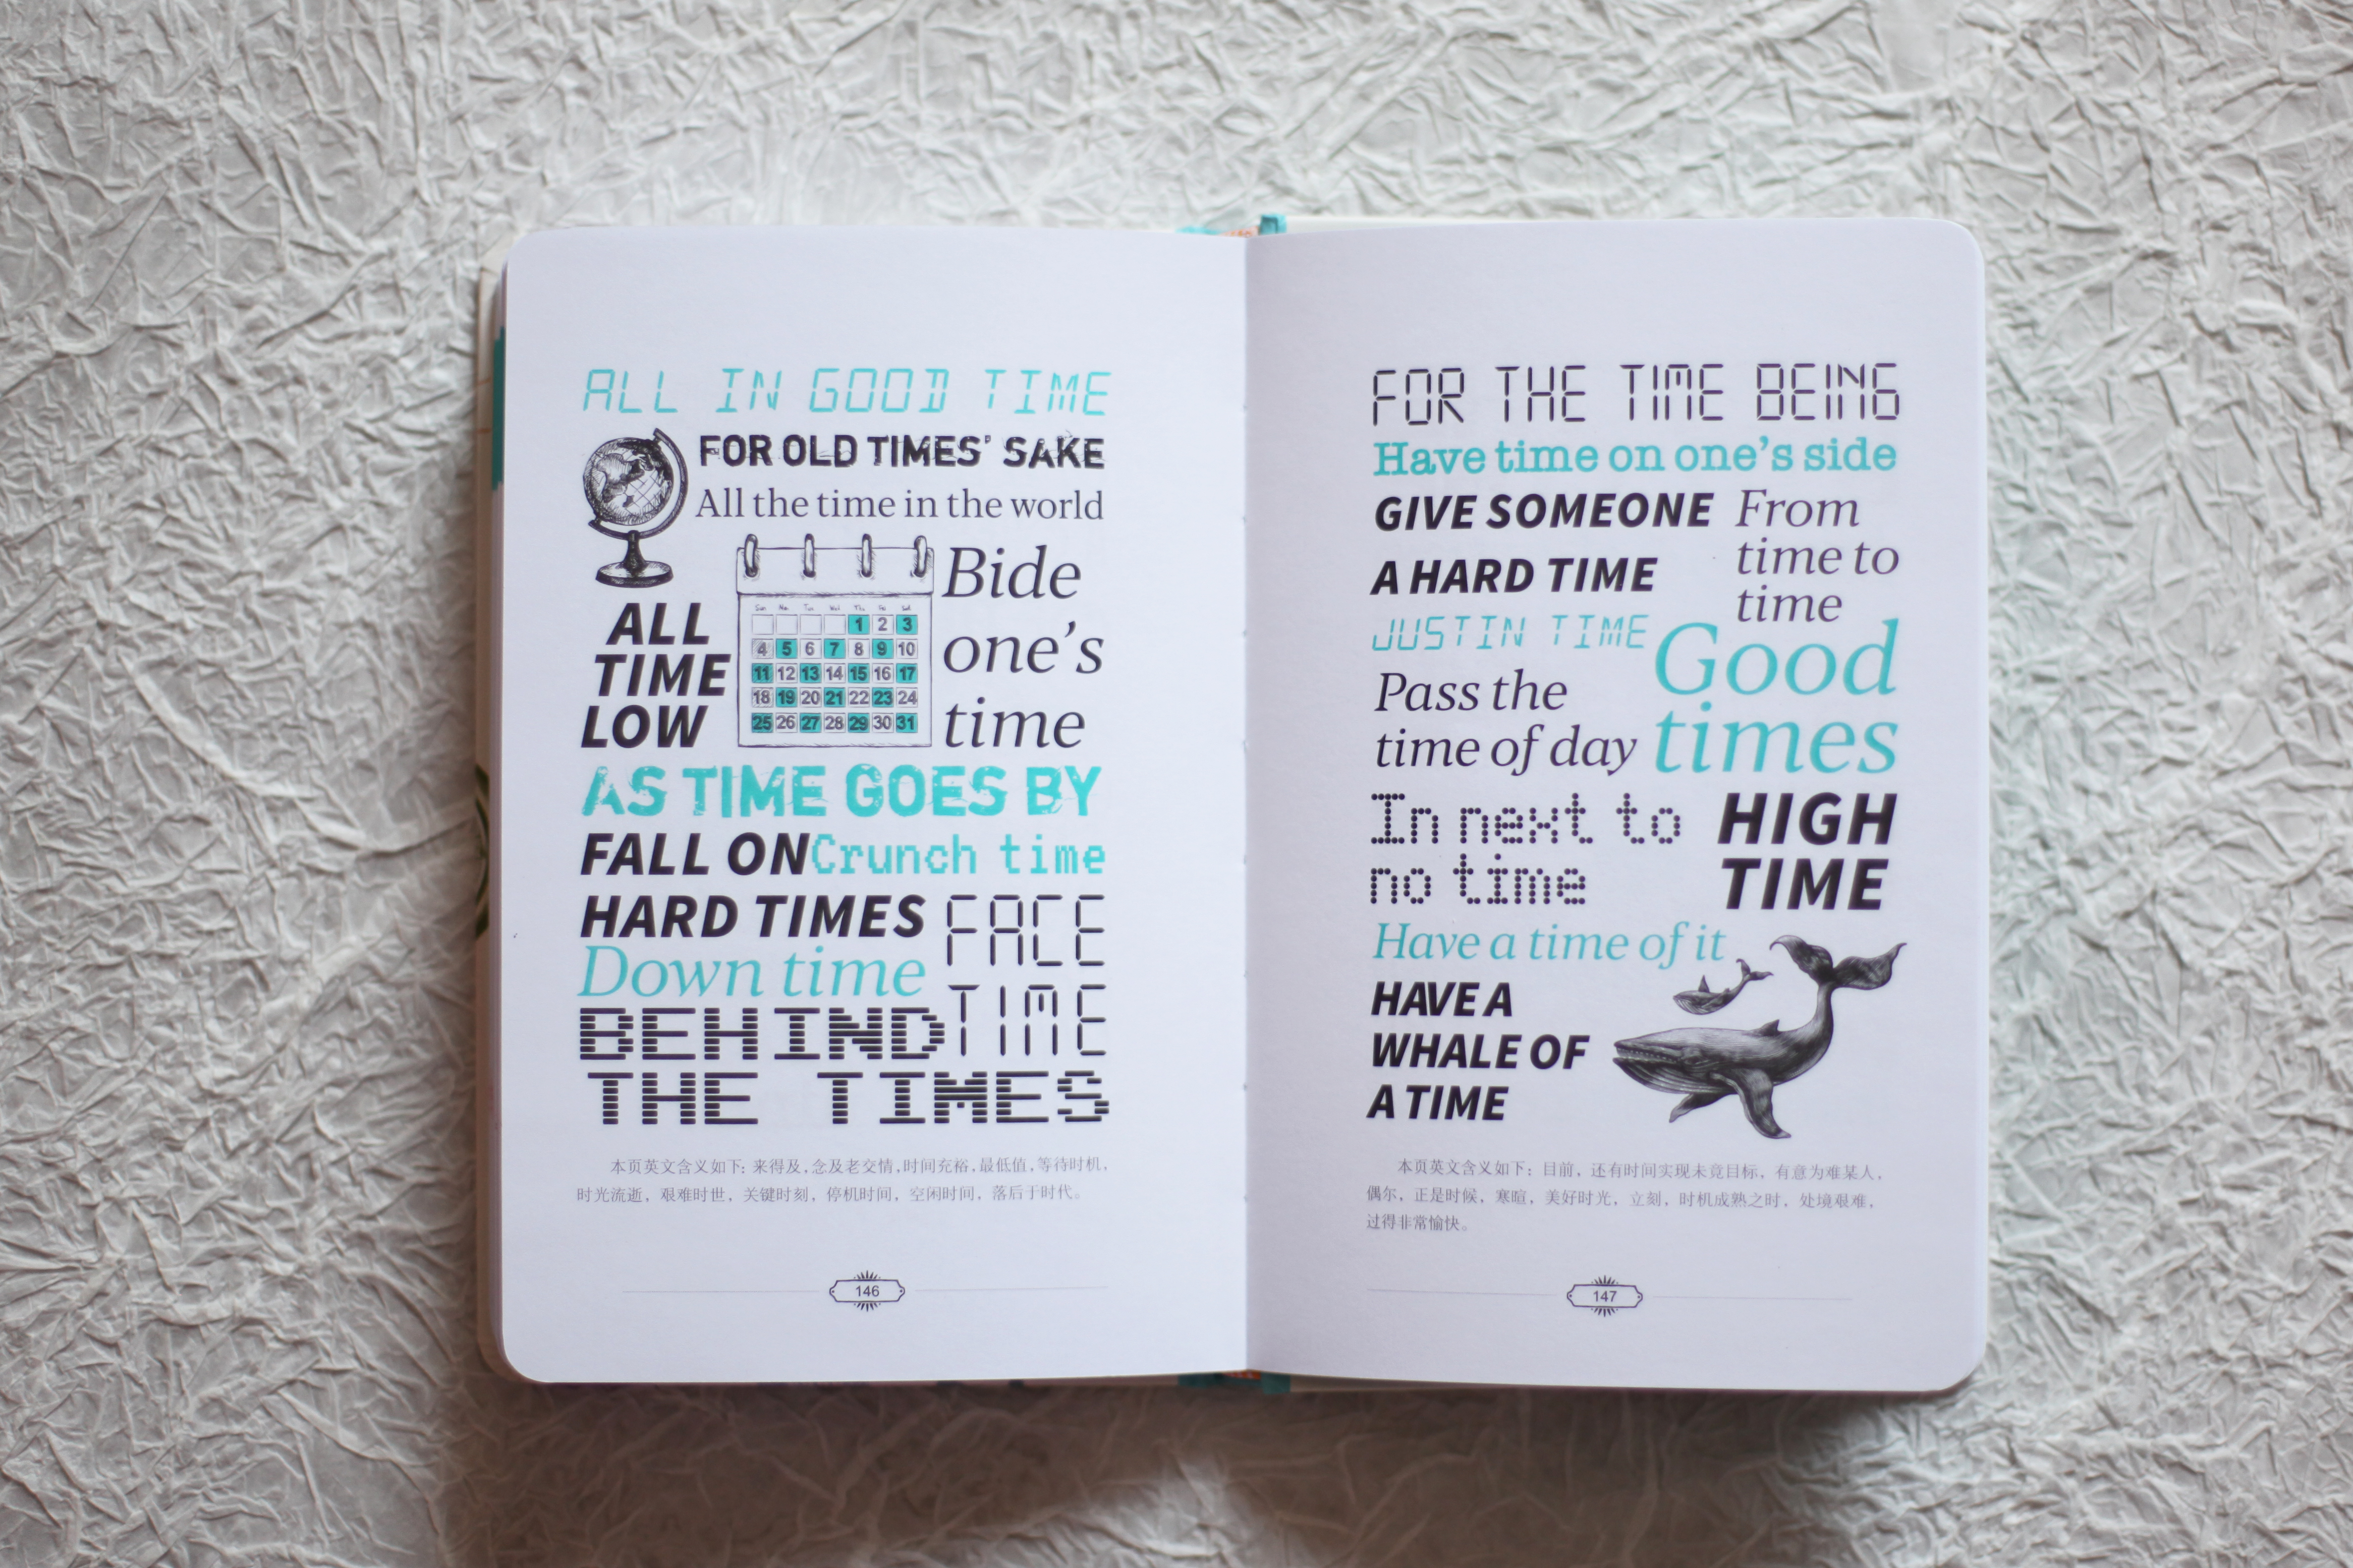 ALL IN GOOD TIME
FOR OLD TIMES' SAKE
All the time in the world
Bide
one's
time
ALL
TIME
LOW
Sun Mo. Tue Wed Thu Fri Sat
1 2 3
4 5 6 7 8 9 10
11 12 13 14 15 16 17
18 19 20 21 22 23 24
25 26 27 28 29 30 31
AS TIME GOES BY
FALL ON
HARD TIMES
Crunch time
Down time
FACE
TIME
BEHIND
THE TIMES
本页英文含义如下: 来得及,念及老交情,时间充裕,最低值,等待时机,
时光流逝，艰难时世，关键时刻，停机时间，空闲时间，落后于时代。
146
FOR THE TIME BEING
Have time on one's side
GIVE SOMEONE
A HARD TIME
From
time to
time
JUSTIN TIME
Pass the
time of day
Good
times
In next to
no time
HIGH
TIME
Have a time of it
HAVE A
WHALE OF
A TIME
本页英文含义如下：目前，还有时间实现未竟目标，有意为难某人，
偶尔，正是时候，寒暄，美好时光，立刻，时机成熟之时，处境艰难，
过得非常愉快。
147